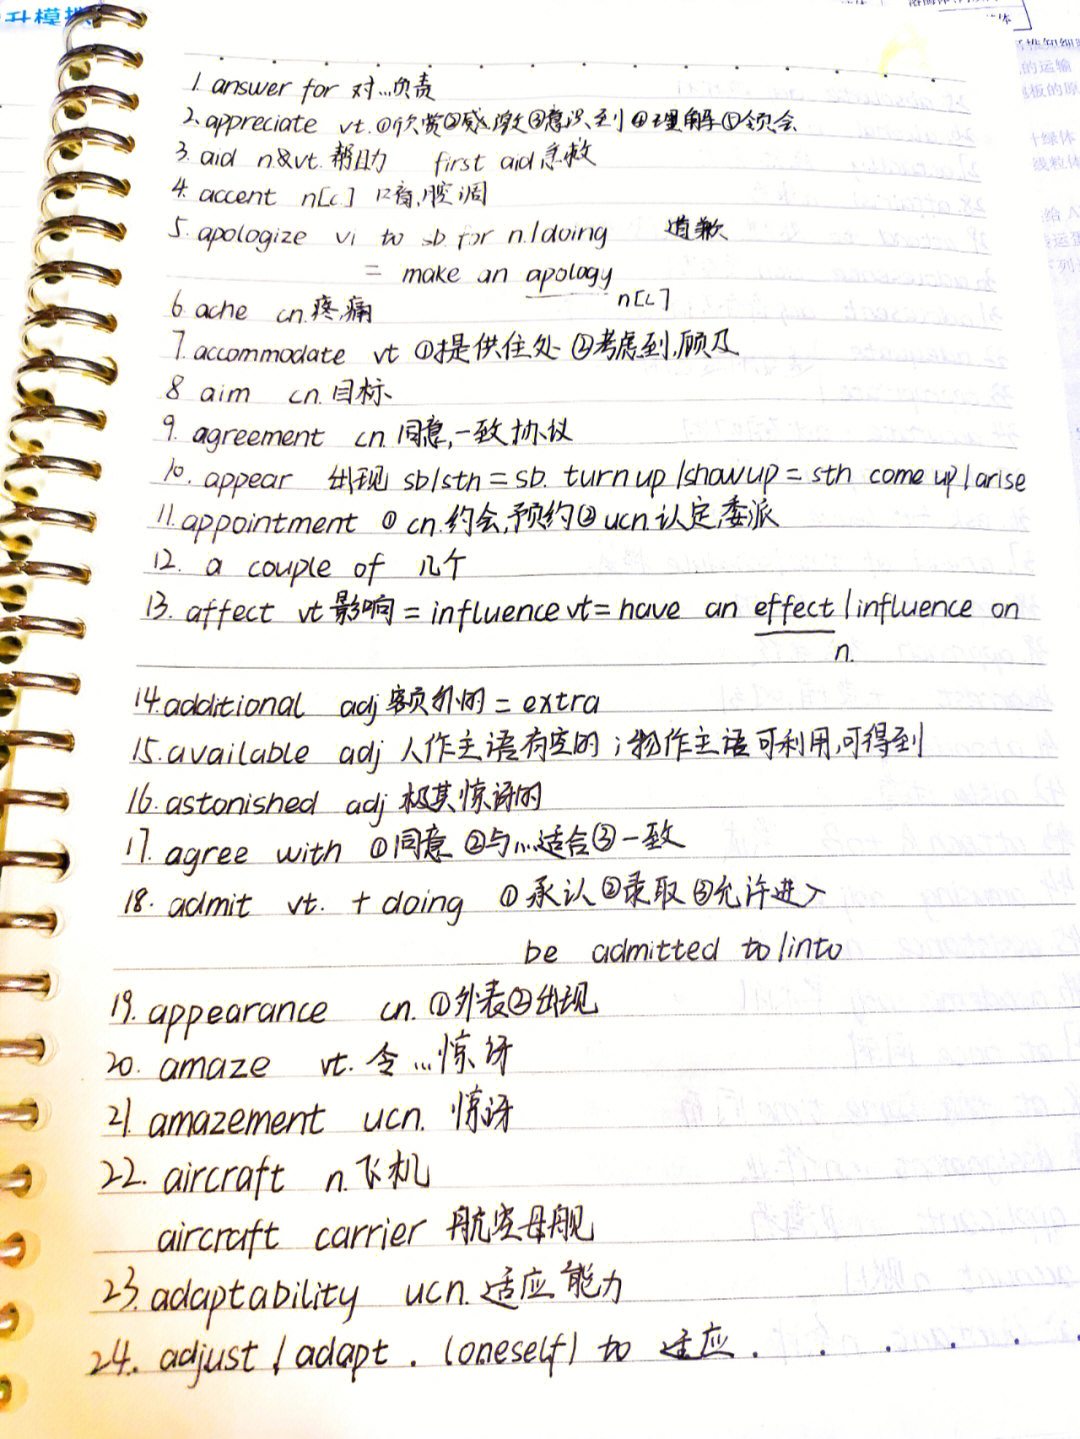 升模拟
1. answer for 对...负责
2. appreciate vt. ①欣赏②感激③意识到④理解⑤领会
3. aid n&vt. 帮助 first aid 急救
4. accent n[c] 口音,腔调
5. apologize vi to sb for n./doing 道歉
= make an apology
n[c]
6. ache cn. 疼痛
7. accommodate vt ①提供住处 ②考虑到,顾及
8 aim cn. 目标
9. agreement cn. 同意,一致协议
10. appear 出现 sb/sth = sb. turn up /show up = sth come up/arise
11. appointment ① cn. 约会,预约② ucn. 认定,委派
12. a couple of 几个
13. affect vt 影响 = influence vt = have an effect / influence on
n.
14. additional adj 额外的 = extra
15. available adj 人作主语有空的;物作主语可利用,可得到
16. astonished adj 极其惊讶的
17. agree with ①同意 ②与...适合③一致
18. admit vt. + doing ①承认②录取③允许进入
be admitted to/into
19. appearance cn. ①外表②出现
20. amaze vt. 令...惊讶
21. amazement ucn. 惊讶
22. aircraft n. 飞机
aircraft carrier 航空母舰
23. adaptability ucn. 适应能力
24. adjust / adapt . (oneself) to 适应
的运输
板的原